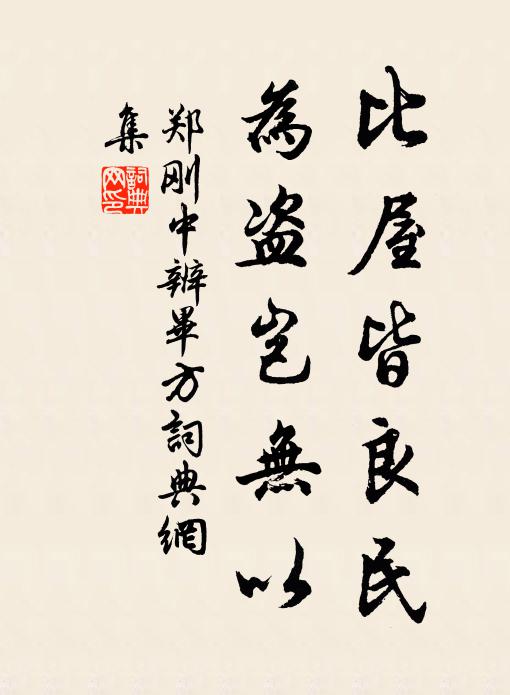 比屋皆良民
為盗岂無以
郑刚中辨畢方詞典網
集
詞典
网印